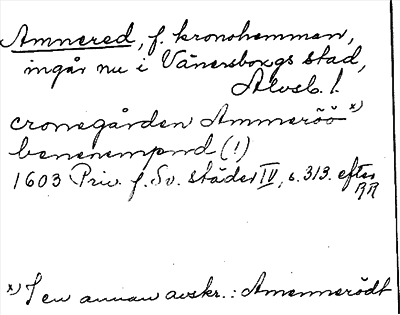 Amnered, f. kronohemman,
ingår nu i Vänersborgs stad,
Älvsb. l.
cronegården Ammeröö x)
benenempnd (!)
1603 Priv. f. Sv. städer IV, s. 313. efter
RR
x) I en annan avskr.: Amennerödt